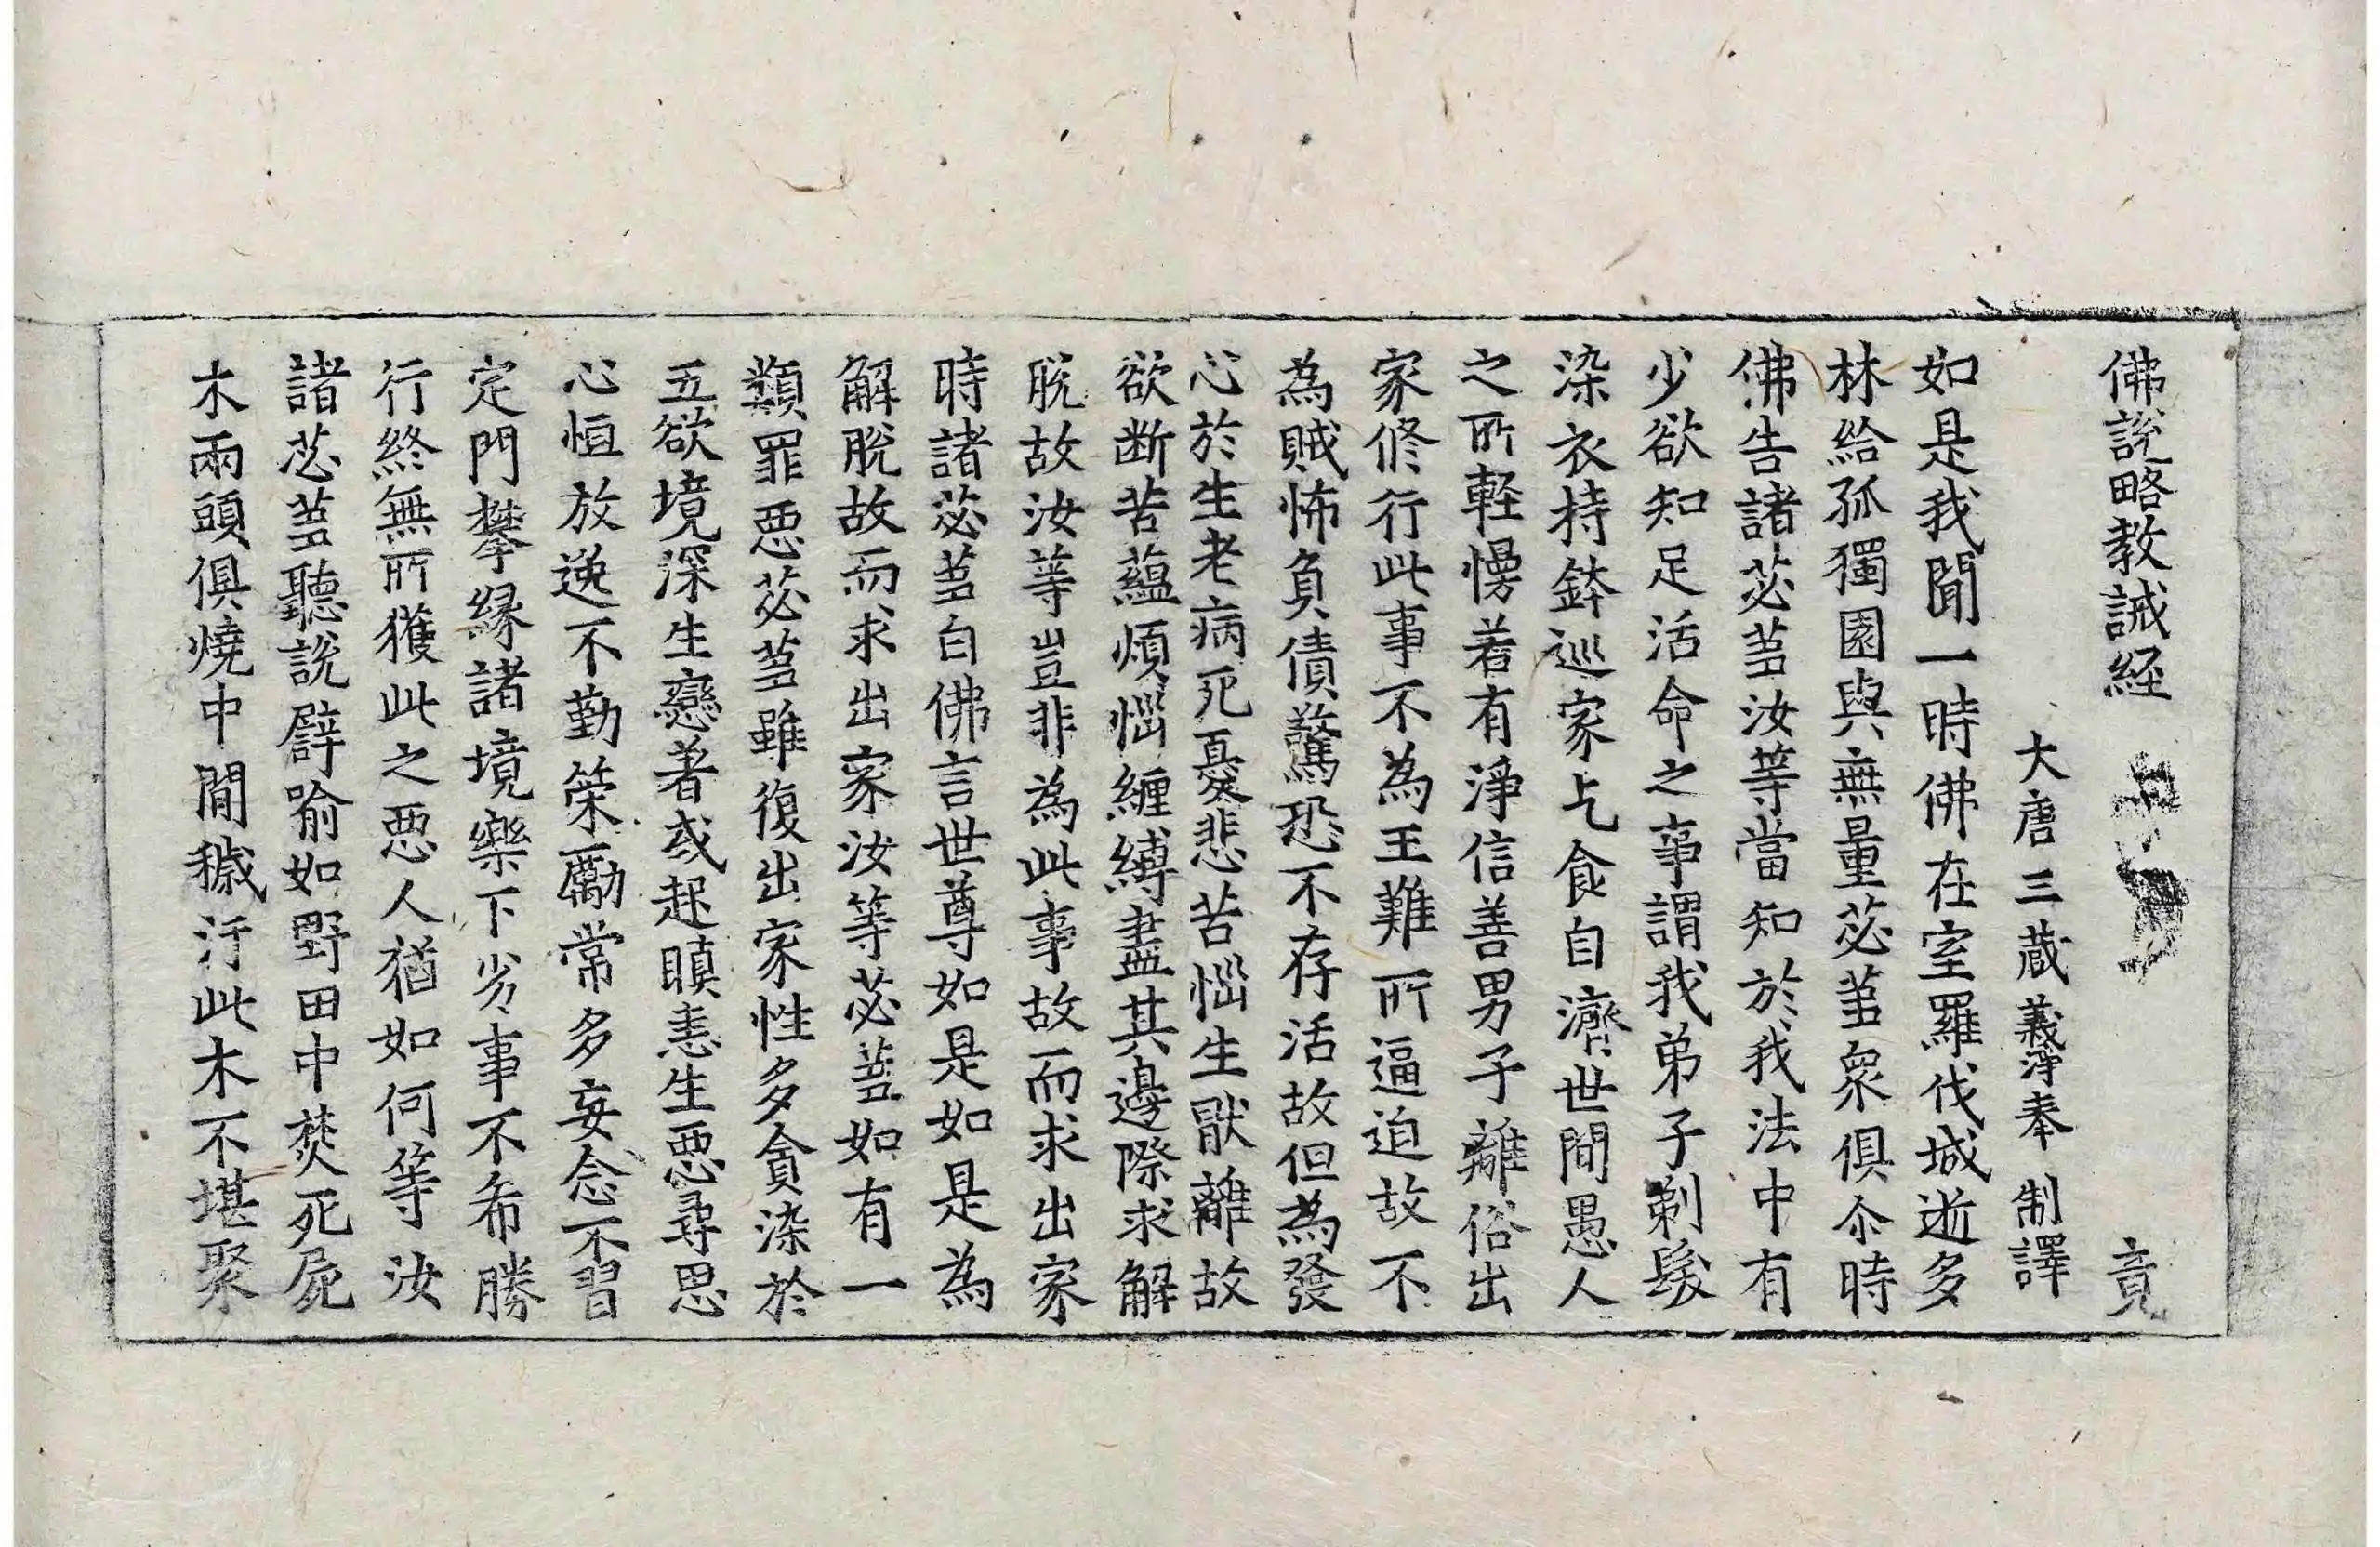 佛說略教誡経 竟
大唐三蔵義淨奉 制譯
如是我聞一時佛在室羅伐城逝多
林給孤獨園與無量苾蒭衆俱尒時
佛告諸苾蒭汝等當知於我法中有
少欲知足活命之事謂我弟子剃髮
染衣持鉢巡家乞食自濟世間愚人
之所軽慢若有淨信善男子離俗出
家修行此事不為王難所逼迫故不
為賊怖負債驚恐不存活故但為發
心於生老病死憂悲苦惱生猒離故
欲断苦蘊煩惱纏縛盡其邊際求解
脫故汝等豈非為此事故而求出家
時諸苾蒭白佛言世尊如是如是為
解脫故而求出家汝等苾蒭如有一
類罪惡苾蒭雖復出家性多貪染於
五欲境深生戀著或起瞋恚生惡尋思
心恒放逸不勤策勵常多妄念不習
定門攀縁諸境樂下劣事不希勝
行終無所獲此之惡人猶如何等汝
諸苾蒭聽說譬喻如野田中焚死屍
木兩頭俱燒中間穢汙此木不堪聚